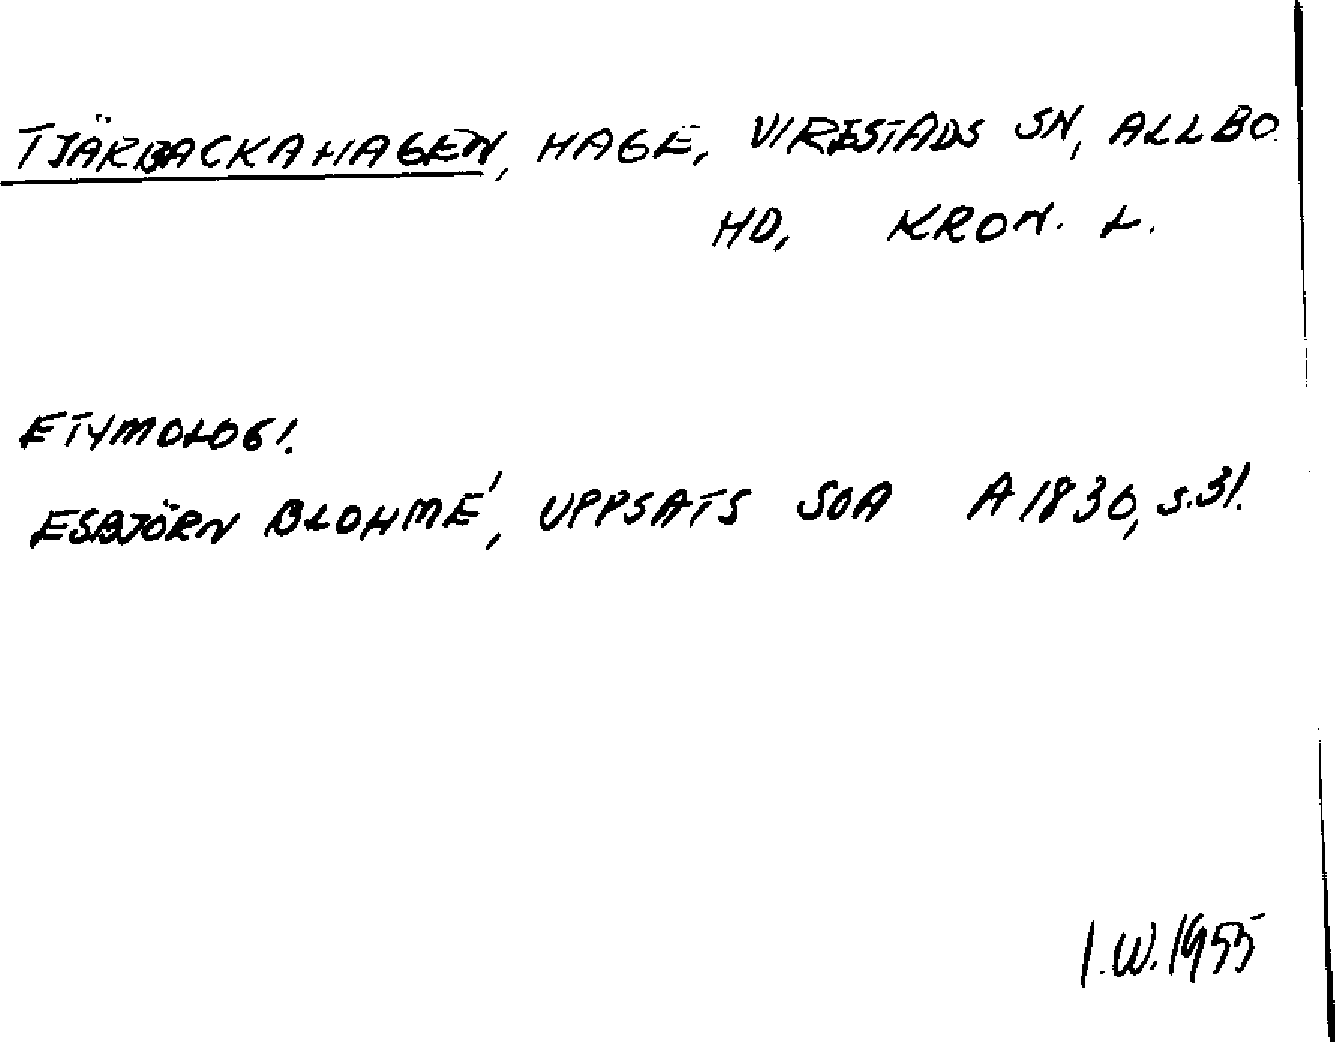 TJÄRBACKAHAGEN, HAGE, VIRESTADS SN, ALLBO
HD, KRON. L.
ETYMOLOGI.
ESBJÖRN BLOHMÉ, UPPSATS SOA A1830, S.31.
I.W.1955